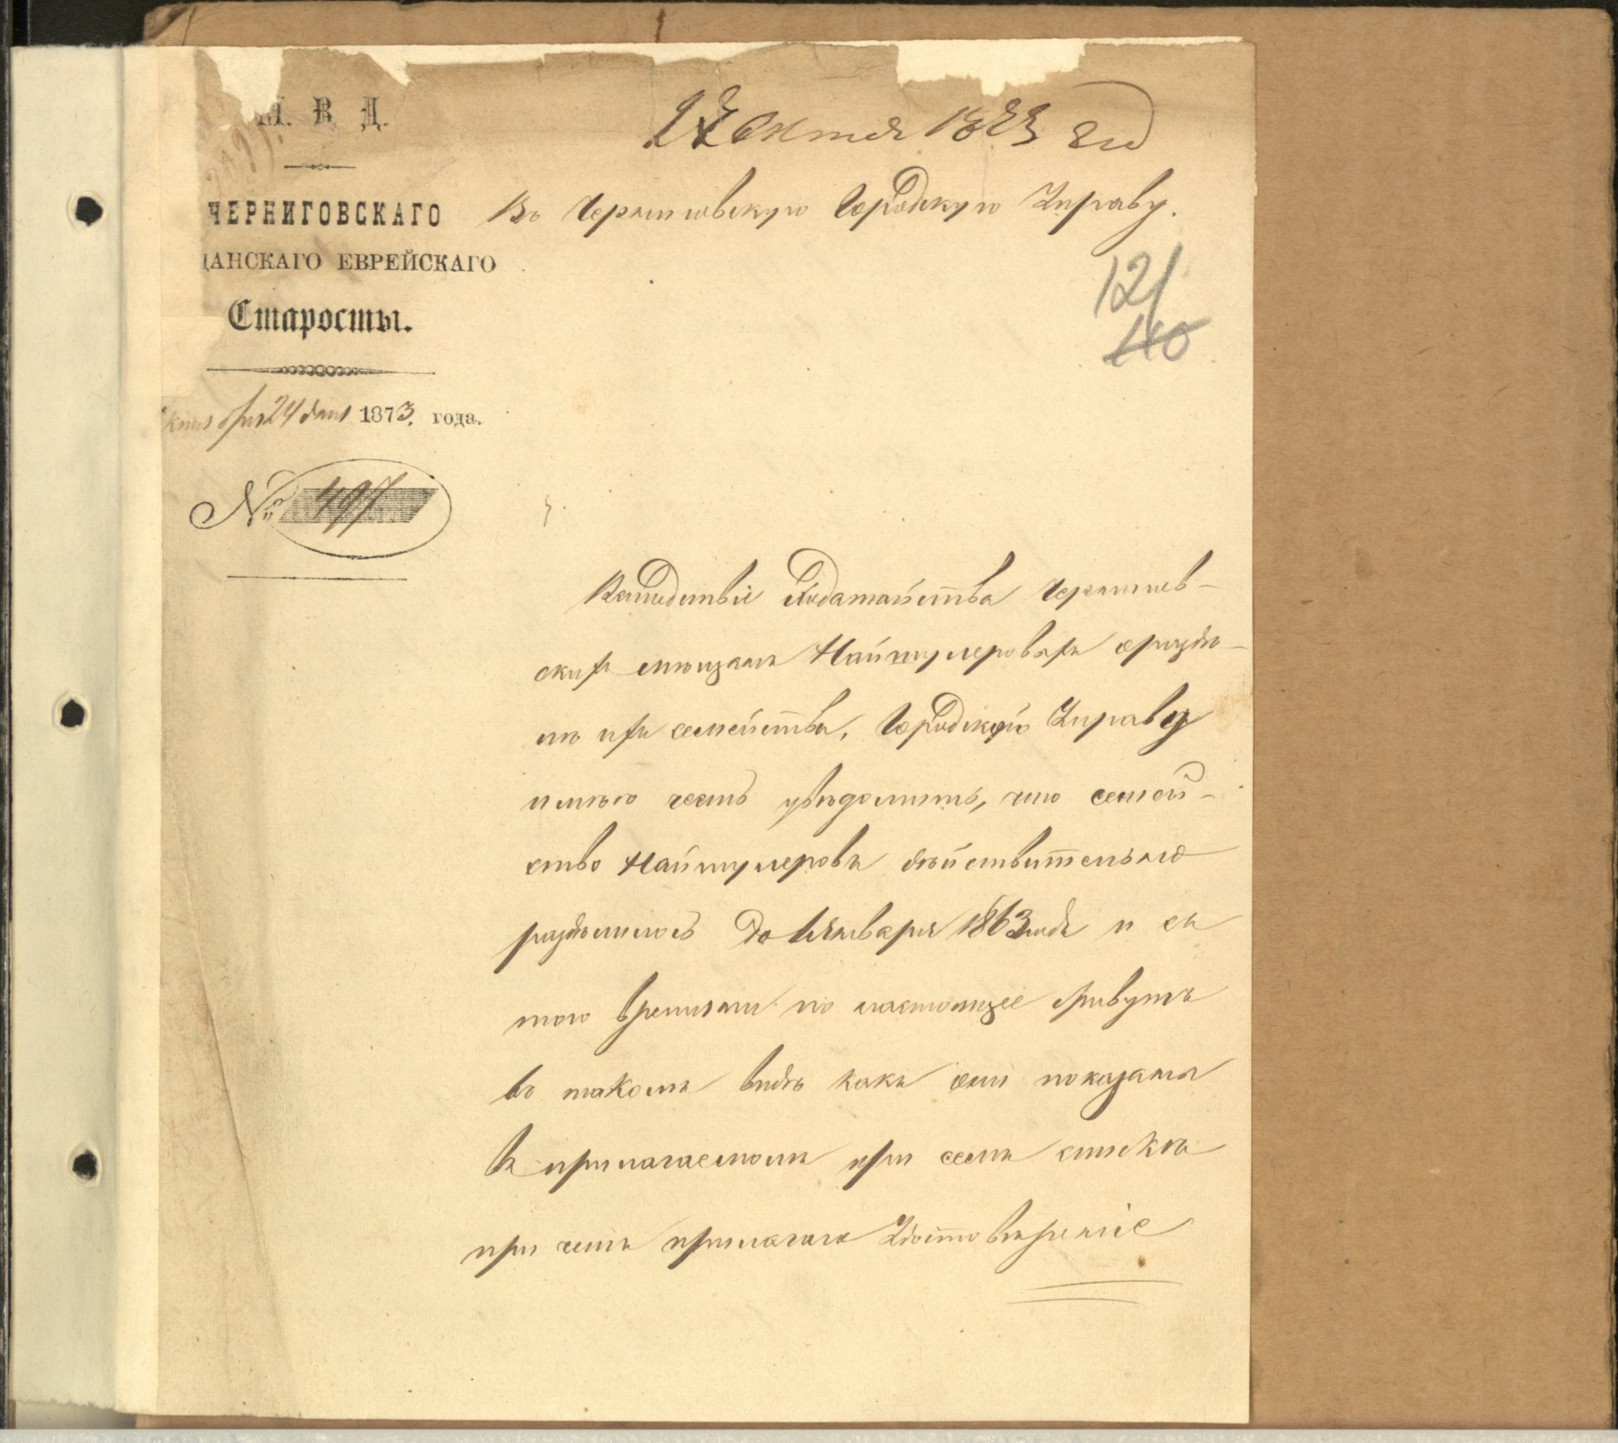 М. В. Д.
ЧЕРНИГОВСКАГО
ДАНСКАГО ЕВРЕЙСКАГО
Старосты.
24 дня 1873. года.
№ 497
27 Октя 1873 год
Въ Черниговскую Городскую Управу.
121
110
Вследствіе Ходатайства Чернигов-
скихъ мѣщанъ Наймулеровыхъ о раздѣ-
лѣ ихъ семейства, Городскую Управу
имѣю честь увѣдомить, что семей-
ство Наймулеровъ дѣйствительно
раздѣлилось до 1 Января 1863 года и съ
того времени по настоящее живутъ
въ такомъ видѣ какъ они показаны
въ прилагаемомъ при семъ спискѣ
при чемъ прилагаю Удостовѣреніе